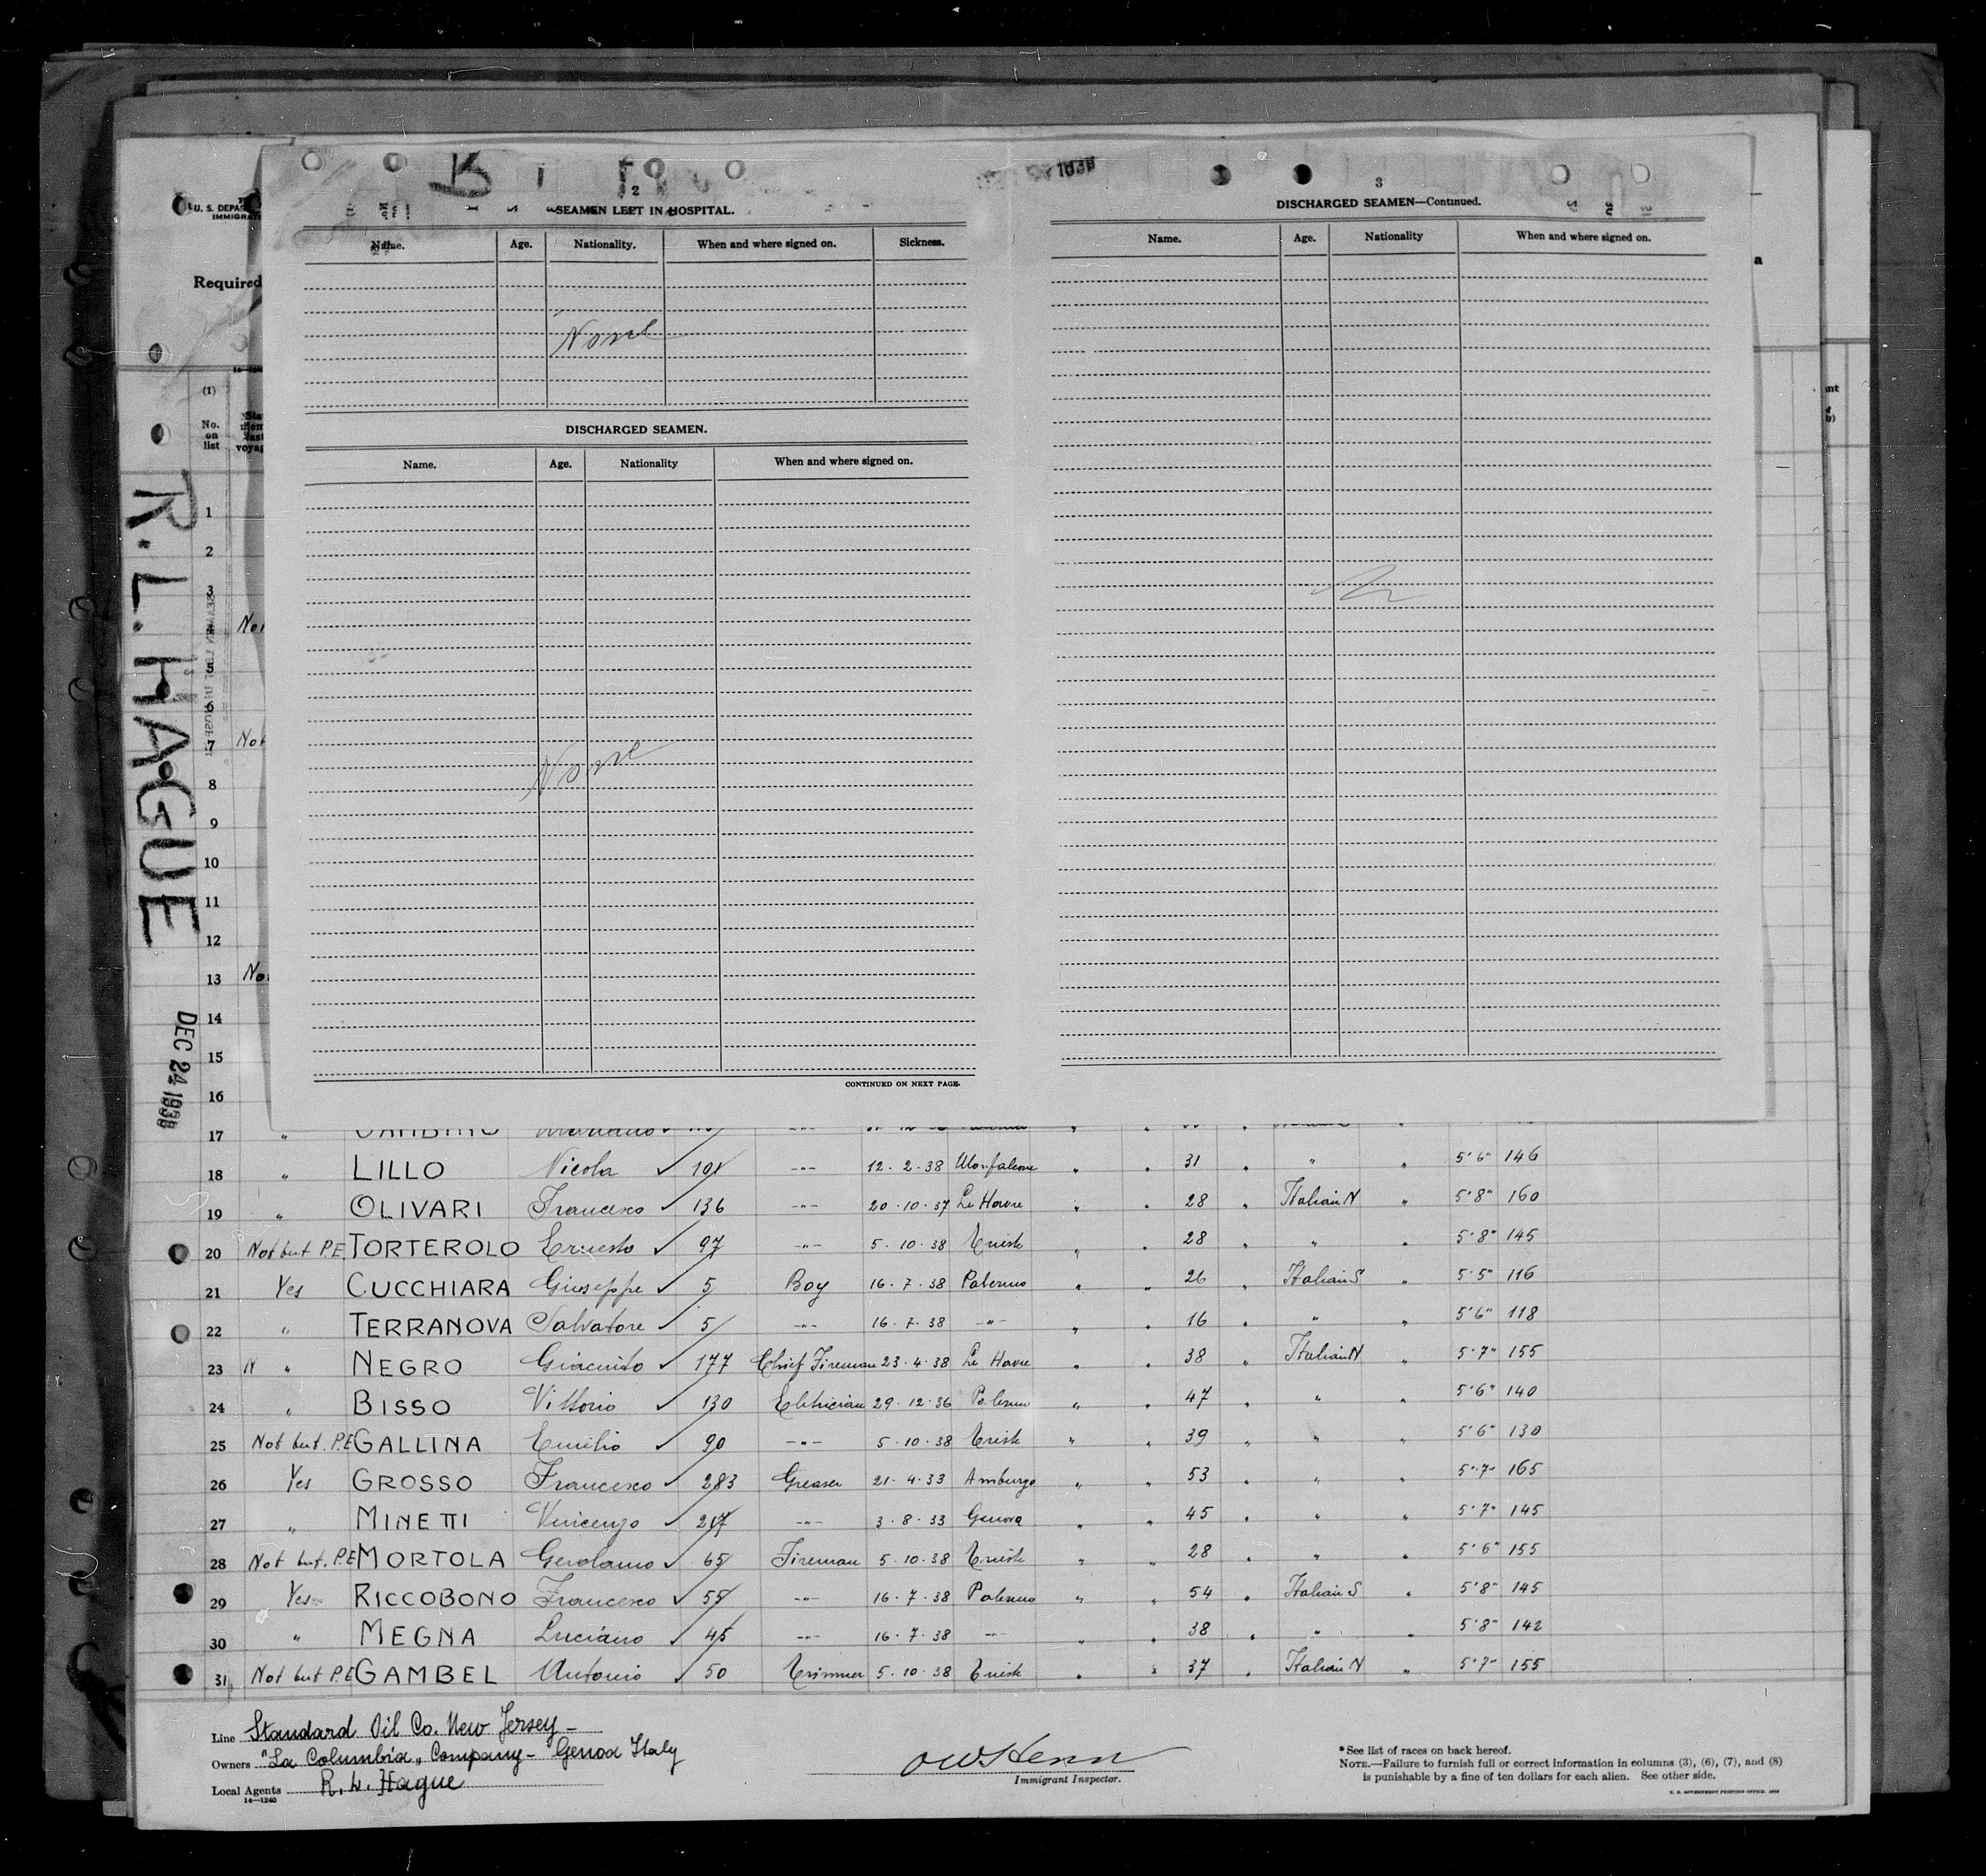 U. S. DEPA
IMMIGRAT
Required
2
SEAMEN LEFT IN HOSPITAL.
Name. Age. Nationality. When and where signed on. Sickness.
None
DISCHARGED SEAMEN.
Name. Age. Nationality When and where signed on.
None
CONTINUED ON NEXT PAGE.
3
DISCHARGED SEAMEN—Continued.
Name. Age. Nationality When and where signed on.
(1)
No. on list
R. L. HAGUE
DEC 24 1938
1
2
3
4
5
6
7
8
9
10
11
12
13
14
15
16
17 "
18 " LILLO Nicola ✓ 101 -"- 12.2.38 Monfalcone " " 31 " " " 5'6" 146
19 " OLIVARI Francesco ✓ 136 -"- 20.10.37 Le Havre " " 28 " Italian N " 5'8" 160
20 Not but P.E. TORTEROLO Ernesto ✓ 97 -"- 5.10.38 Trieste " " 28 " " " 5'8" 145
21 Yes CUCCHIARA Giuseppe ✓ 5 Boy 16.7.38 Palermo " " 26 " Italian S " 5'5" 116
22 " TERRANOVA Salvatore ✓ 5 -"- 16.7.38 -"- " " 16 " " " 5'6" 118
23 N " NEGRO Giacinto ✓ 177 Chief Fireman 23.4.38 Le Havre " " 38 " Italian N " 5'7" 155
24 " BISSO Vittorio ✓ 130 Elettrician 29.12.36 Palermo " " 47 " " " 5'6" 140
25 Not but. P.E. GALLINA Emilio ✓ 90 -"- 5.10.38 Trieste " " 39 " " " 5'6" 130
26 Yes GROSSO Francesco ✓ 283 Greaser 21.4.33 Amburgo " " 53 " " " 5'7" 165
27 " MINETTI Vincenzo ✓ 217 -"- 3.8.33 Genova " " 45 " " " 5'7" 145
28 Not but. P.E. MORTOLA Gerolamo ✓ 65 Fireman 5.10.38 Trieste " " 28 " " " 5'6" 155
29 Yes RICCOBONO Francesco ✓ 55 -"- 16.7.38 Palermo " " 54 " Italian S " 5'8" 145
30 " MEGNA Luciano ✓ 45 -"- 16.7.38 -"- " " 38 " " " 5'8" 142
31 Not but P.E. GAMBEL Antonio ✓ 50 Trimmer 5.10.38 Trieste " " 37 " Italian N " 5'7" 155
Line Standard Oil Co. New Jersey -
Owners "La Columbia" Company - Genoa Italy
Local Agents R. L. Hague
14—1240
Immigrant Inspector.
* See list of races on back hereof.
NOTE.—Failure to furnish full or correct information in columns (3), (6), (7), and (8)
is punishable by a fine of ten dollars for each alien. See other side.
U. S. GOVERNMENT PRINTING OFFICE